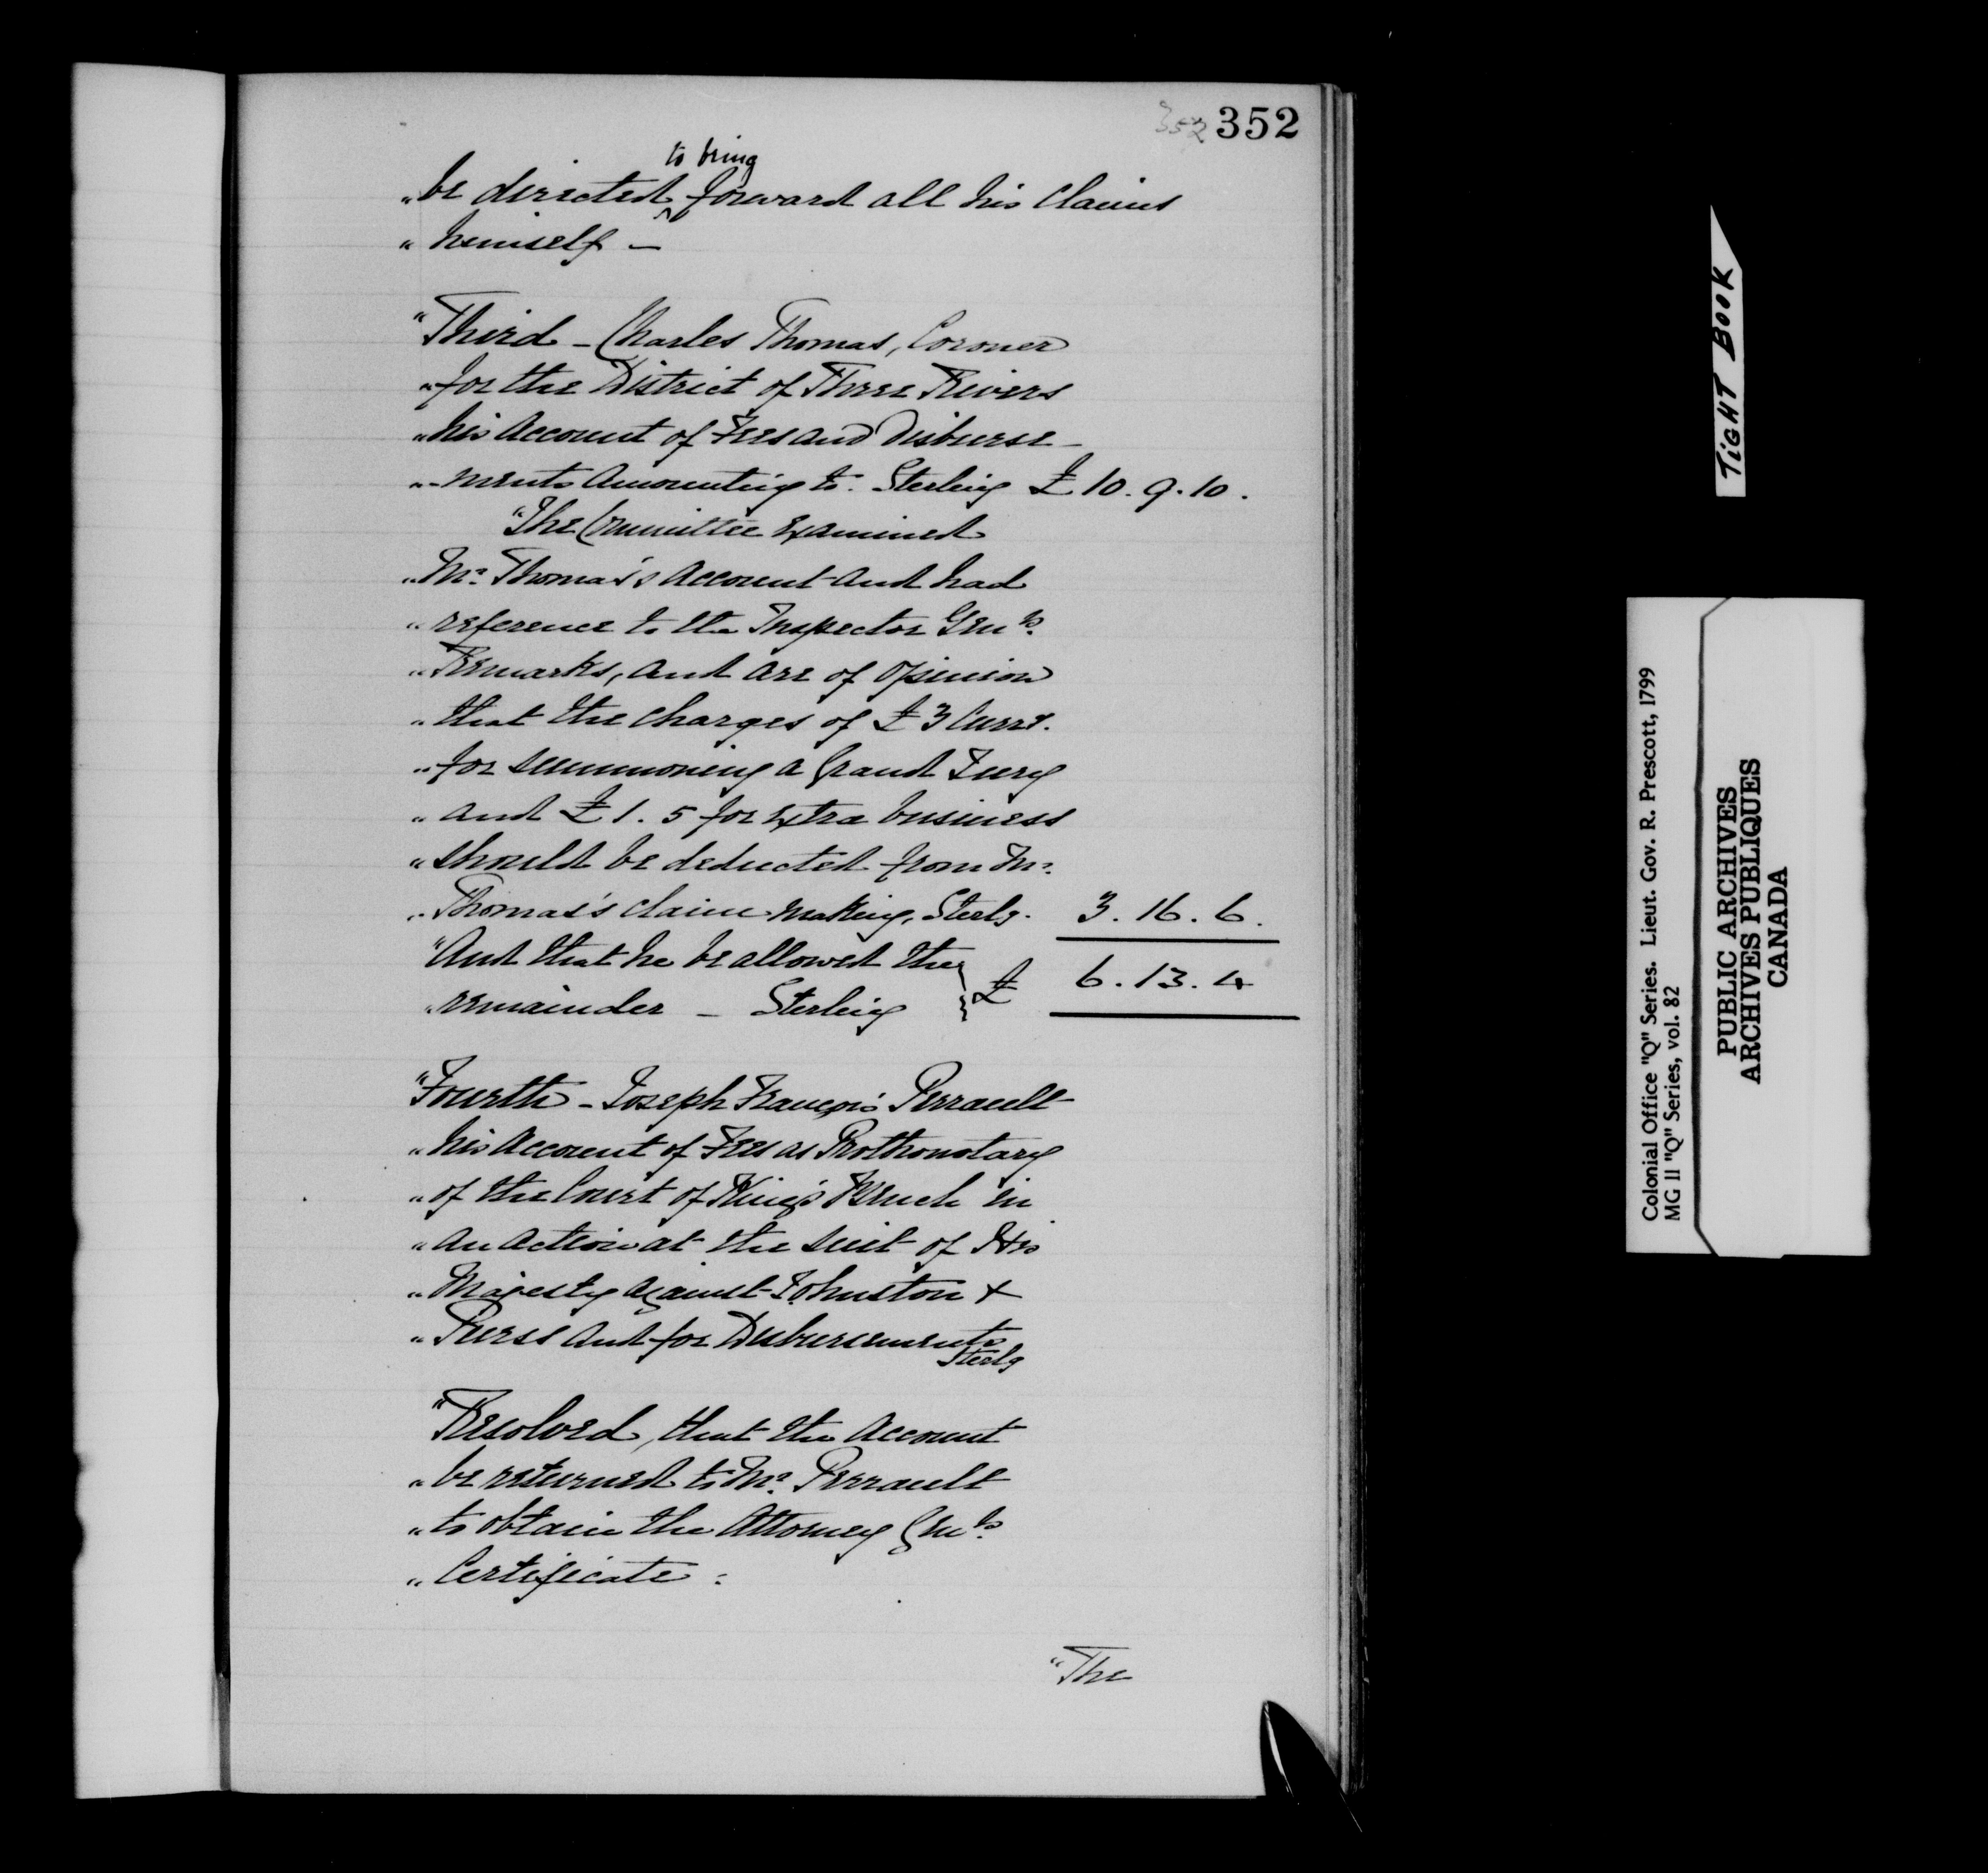 352 352
to bring
"be directed ^ forward all his Claims
"himself –
"Third – Charles Thomas, Coroner
"for the District of Three Rivers
"his Account of Fees and Disburse–
"–ments Amounting to. Sterling £10.9.10.
"The Committee Examined
"Mr. Thomas's Account and had
"reference to the Inspector Genls.
"Remarks, and are of Opinion
"that the charges of £3 Curry.
"for summoning a Grand Jury
"and £1.5 for Extra business
"should be deducted from Mr.
"Thomas's claim making, Sterlg. 3.16.6.
"And that he be allowed the
"remainder – Sterling } £ 6.13.4
"Fourth – Joseph François Perrault
"his Account of Fees as Prothonotary
"of the Court of King's Bench in
"an action at the suit of His
"Majesty against Johnston &
"Purss and for Disbursements
Sterlg
"Resolved, that the Account
"be returned to Mr. Perrault
"to obtain the Attorney Genls.
"Certificate :
"The
TIGHT BOOK
Colonial Office "Q" Series. Lieut. Gov. R. Prescott, 1799
MG 11 "Q" Series, vol. 82
PUBLIC ARCHIVES
ARCHIVES PUBLIQUES
CANADA